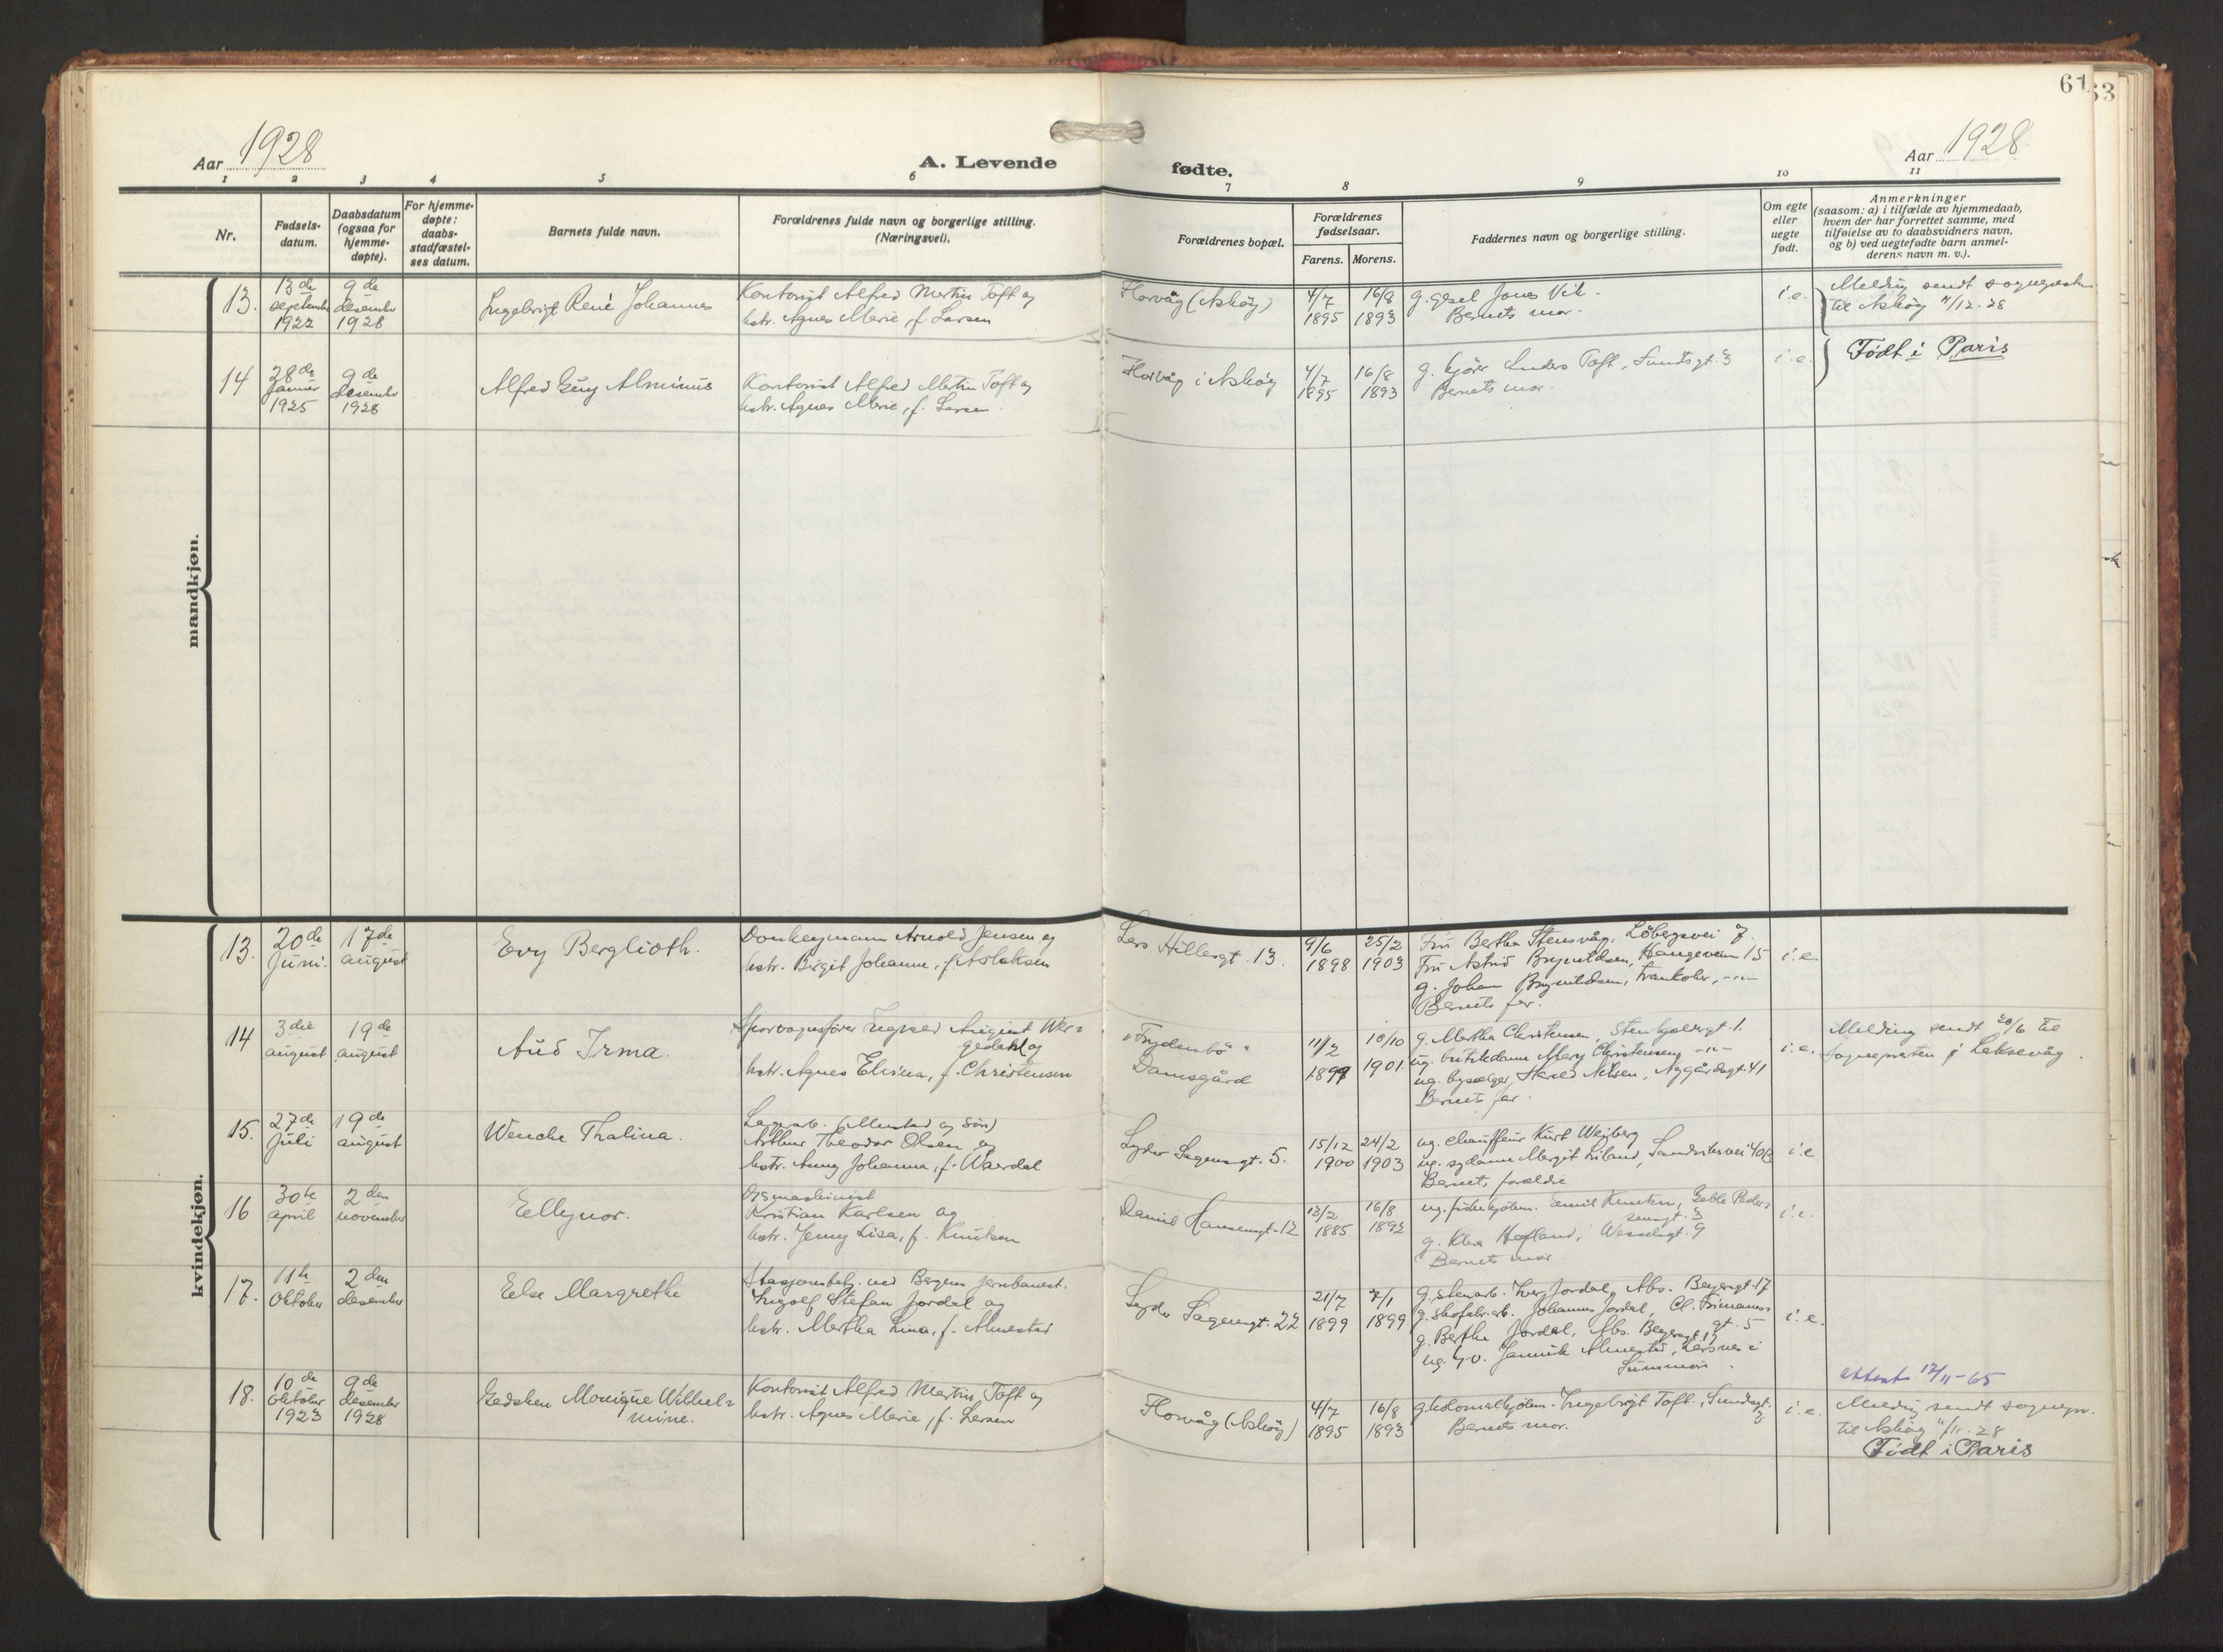 61
63
Aar 1928
A. Levende
fødte.
Aar 1928.
1 2 3 4 5 6 7 8 9 10 11
Nr.
Fødsels-
datum.
Daabsdatum
(ogsaa for
hjemme-
døpte).
For hjemme-
døpte:
daabs-
stadfæstel-
ses datum.
Barnets fulde navn.
Forældrenes fulde navn og borgerlige stilling.
(Næringsvei).
Forældrenes bopæl.
Forældrenes
fødselsaar.
Farens. Morens.
Faddernes navn og borgerlige stilling.
Om egte
eller
uegte
født.
Anmerkninger
(saasom: a) i tilfælde av hjemmedaab,
hvem der har forrettet samme, med
tilføielse av to daabsvidners navn,
og b) ved uegtefødte barn anmel-
derens navn m. v.).
mandkjøn.
13.
13de
september
1922
9de
desember
1928
Ingebrigt René Johannes
Kontorist Alfred Martin Toft og
hstr. Agnes Marie, f. Larsen
Florvåg (Askøy)
4/7
1895
16/8
1893
g. gsel Jonas Vik.
Barnets mor.
i.e.
Melding sendt sognepresten
til Askøy 11/12.28
14
28de
januar
1925
9de
desember
1928
Alfred Guy Alminus
Kontorist Alfred Martin Toft og
hstr. Agnes Marie, f. Larsen.
Florvåg i Askøy
4/7
1895
16/8
1893
g. kjører Anders Toft, Sundsgt. 3
Barnets mor.
i.e.
Født i Paris
kvindekjøn.
13.
20de
juni.
17de
august
Evy Berglioth.
Donkeymann Arnold Jensen og
hstr. Birgit Johanne, f. Aslaksen
Lars Hillesgt. 13.
9/6
1898
25/2
1903
Fru Bertha Stensvåg, Løbergsvei 7.
Fru Astrid Bryneldsen, Haugeveien 15
g. Johan Bryneldsen, -"-
Barnets far.
i.e.
14
3die
august
19de
august
Aud Irma.
Sporvognsfører Ingvald August Wer-
gedahl og
hstr. Agnes Elvina, f. Christensen
"Frydenbø"
Damsgård
11/2
1899
10/10
1901.
g. Martha Christensen, Stenkjelergt. 1.
ug. butikdame Mary Christensen, -"-
ug. bysælger Harald Nilsen, Nygårdsgt. 41
Barnets far.
i.e.
Melding sendt 20/6 til
sognepresten i Laksevåg.
15.
27de
juli
19de
august
Wenche Thalina.
Lagerarb. (Mustad og Søn)
Arthur Theodor Olsen og
hstr. Anny Johanna, f. Waerdal
Lyder Sagensgt. 5.
15/12
1900
24/2
1903
ug. chauffeur Kurt Weiberg
ug. sydame Margit Liland, Sandviksvei 40B
Barnets forældre
i.e.
16
30te
april
2den
november
Ellynor.
Kristian Karlsen og
hstr. Jenny Lisa, f. Knutsen
Daniel Hansensgt. 12
13/2
1885
16/8
1892
ug. Emil Knutsen, Gable Peder-
sensgt. 3
g. Klara Hafland, Wesselsgt. 9
Barnets mor
i.e.
17.
11te
oktober
2den
desember
Else Margrethe
Stasjonsbetj. ved Bergens jernbanest.
Ingolf Stefan Jordal og
hstr. Martha Lina, f. Almestad
Lyder Sagensgt. 22
21/7
1899
7/1
1899
g. stenarb. Iver Jordal, Abs. Beyersgt. 17
g. skofabr.arb. Johannes Jordal, Cl. Frimanns-
gt. 5
g. Berthe Jordal, Abs. Beyersgt. 17
ug. Jannik Almestad, Larsnes i
Sunnmøre.
i.e.
18.
10de
oktober
1923
9de
desember
1928
Gedsken Monique Wilhel-
mine.
Kontorist Alfred Martin Toft og
hstr. Agnes Marie, f. Larsen
Florvåg (Askøy)
4/7
1895
16/8
1893
g. kolonialhjølm. Ingebrigt Toft., Sundsgt.
3
Barnets mor.
i.e.
Attest 12/11-65
Melding sendt sognepr.
til Askøy 11/11.28
Født i Paris